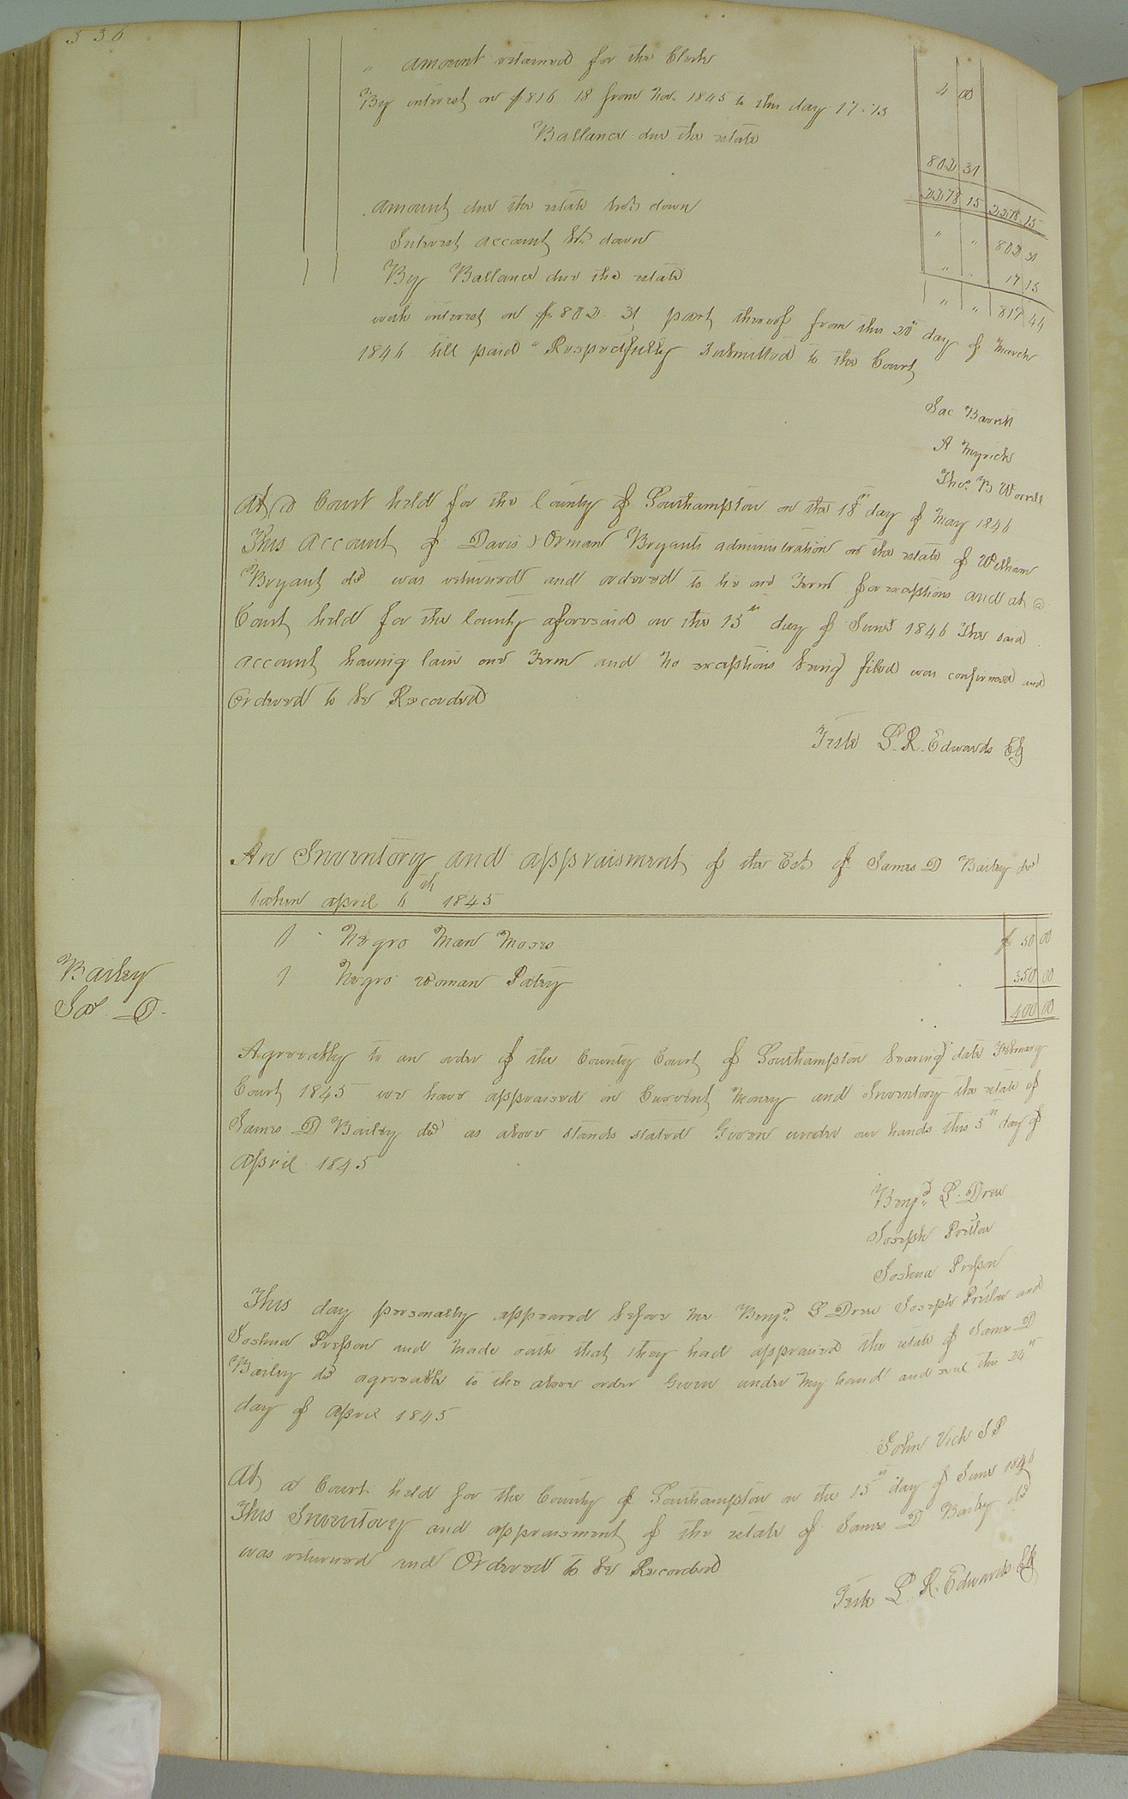 536
" amount retained for the Clerk 4 00
By interest on $816 18 from Nov. 1845 to this day 17.13
Ballance due the estate 802 31
2278 15 2278.15
amount due the estate brot down " " 802 31
Interest account bt. down " " 17 13
By Ballance due the estate " " 819 44
with interest on $802. 31 part thereof from this 20th day of March
1846 till paid " Respectfully Submitted to the Court
Jac Barrett
A Myrick
Thos. B Worrell
At a Court held for the County of Southampton on the 18th day of May 1846
This account of Davis & Orman Bryants administration on the estate of
Bryant decd was returned and ordered to lie one Term for exceptions and at a
Court held for the County aforesaid on the 15th day of June 1846 The said
account having lain one Term and no exceptions being filed was confirmed and
Ordered to be Recorded
Teste L. R. Edwards Clk
An Inventory and appraisment of the Est of James D Bailey decd
taken april 5th 1845
1 Negro Man Moses $ 50 00
1 Negro woman Patsy 350 00
400 00
Bailey
Jas D.
Agreeably to an order of the County Court of Southampton bearing date February
Court 1845 we have appraised in Current Money and Inventory the estate of
James D Bailey decd as above stands stated Given under our hands this 5th day of
April 1845
Benjn. L. Drew
Joseph Pretlow
Joshua Presson
This day personally appeared before me Benjn. L Drew Joseph Pretlow and
Joshua Presson and made oath that they had appraised the estate of James D
Bailey decd agreeable to the above order Given under my hand and seal this 24th
day of April 1845
John Vick J P
At a Court held for the County of Southampton on the 15th day of June 1846
This Inventory and appraisment of the estate of James D Bailey decd
was returned and Ordered to be Recorded
Teste L. R. Edwards Clk